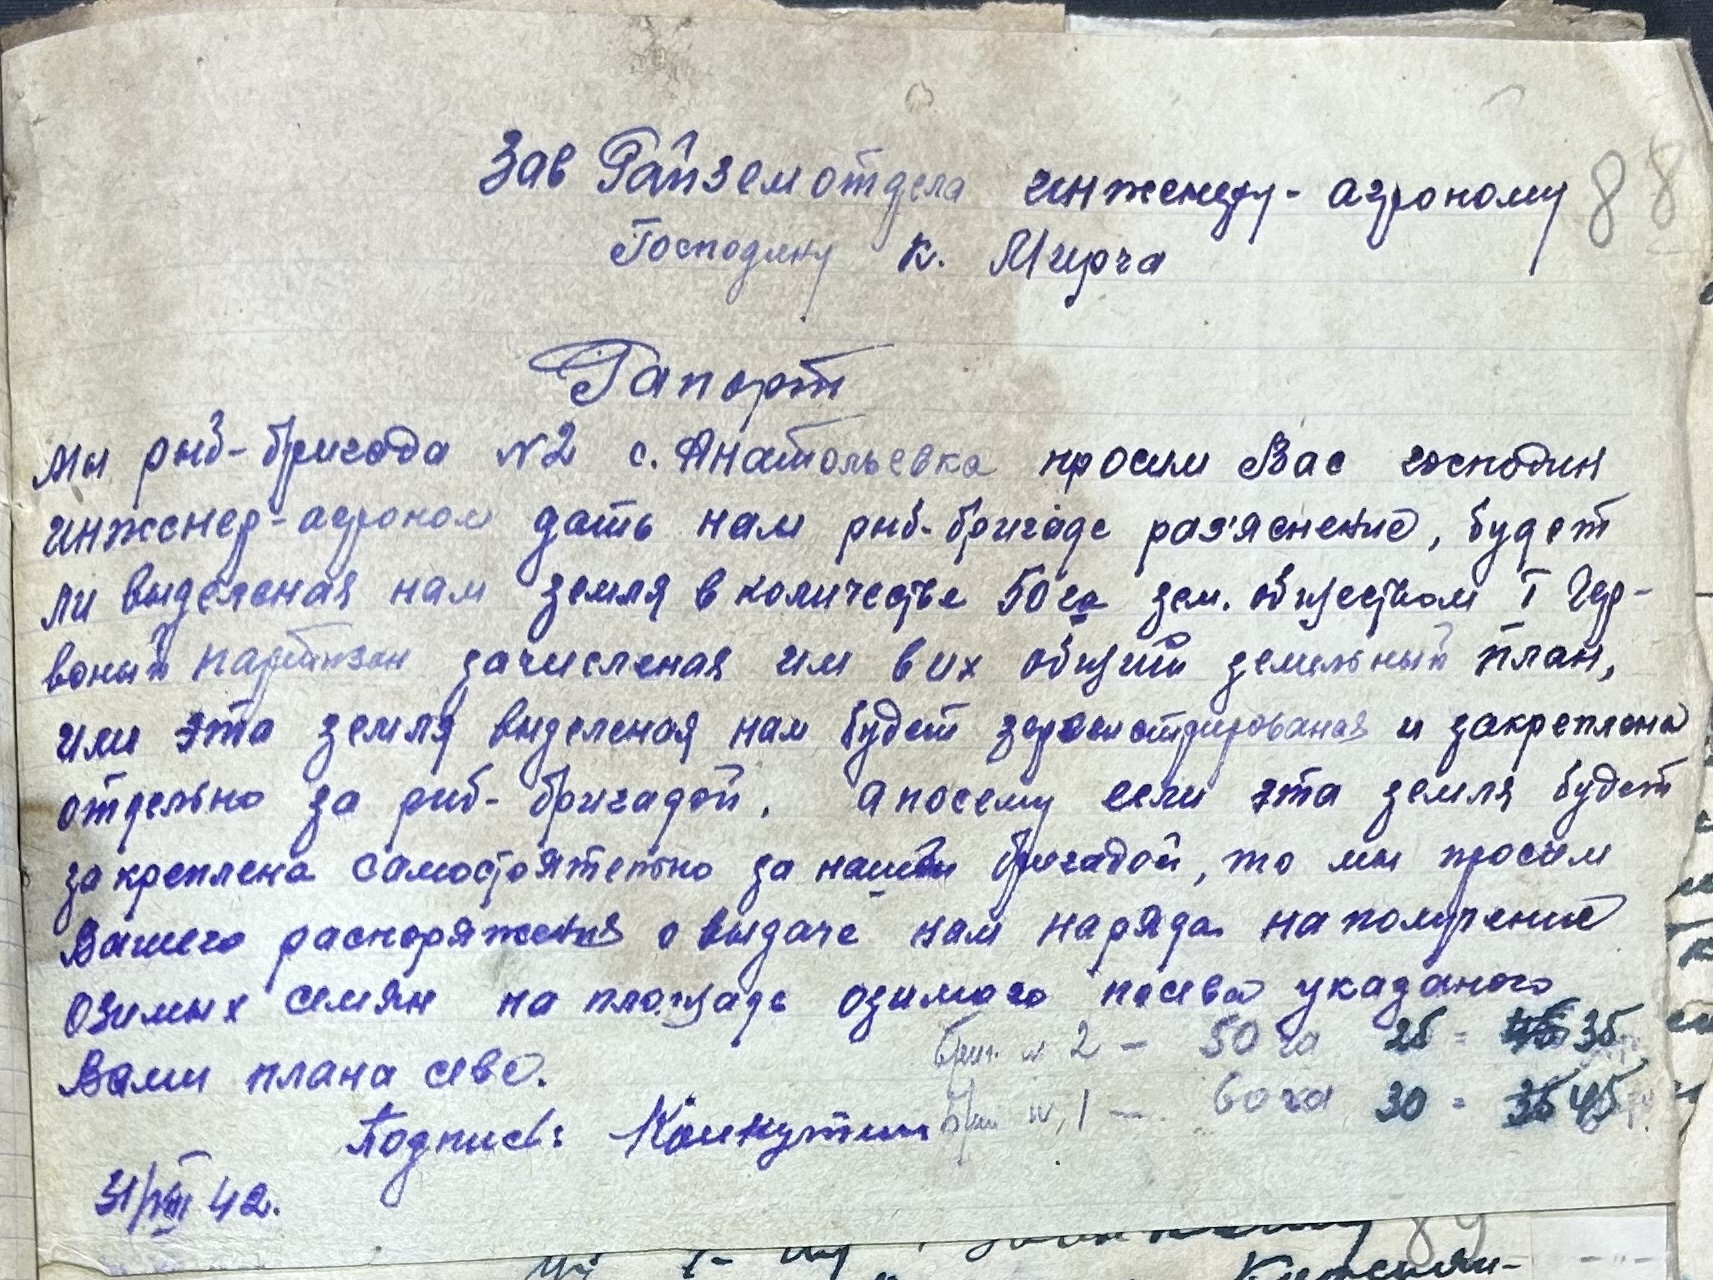 Зав Райземотдела инженеру-агроному
88
Господину К. Мирча
Рапорт
Мы рыб-бригада №2 с. Анатольевка просим Вас господин
инженер-агроном дать нам рыб-бригаде раз'яснение, будет
ли выделеная нам земля в количестве 50 га зем. обществом I Чер-
воный партизан зачисленая им в их общий земельный план,
или эта земля выделеная нам будет зарегистрированая и закреплена
отдельно за рыб-бригадой. а посему если эта земля будет
закреплена самостоятельно за нашей бригадой, то мы просим
Вашего распоряжения о выдаче нам наряда на получение
озимых семян на площадь озимого посева указаного
Вами плана сева.
Бриг. № 2 — 50 га 25 = 35
Бриг № 1 — 60 га 30 = 35 45
Подпись:
31/VIII 42.
89